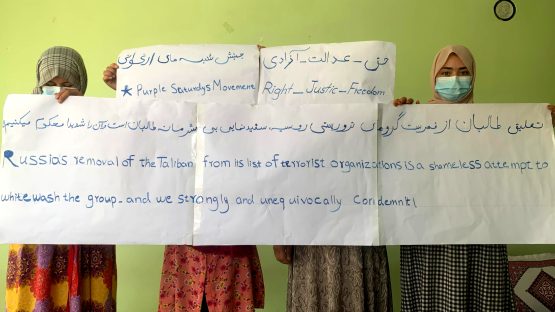 جنبش شنبه های ارغوانی
★ Purple Saturdys Movement
حق _ عدالت _ آزادی
Right _ Justic _ Freedom
تعلیق طالبان از فهرست گروه های تروریستی روسیه، سفیدنمایی بی شرمانه طالبان است و آن را شدیدا محکوم میکنیم
Russias removal of the Taliban from its list of terrorist organizations is a shameless attempt to
white wash the group. and we strongly and unequivocally Condemnt!